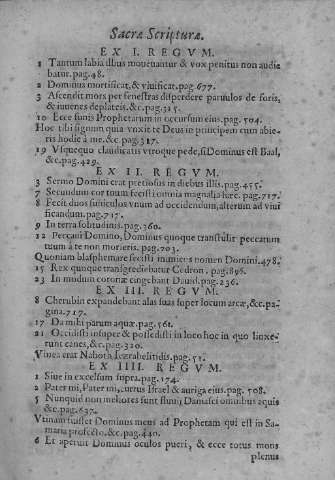 Sacræ Scripturæ.
EX I. REGVM.
1 Tantum labia illius mouebantur & vox penitus non audie
batur. pag. 48.
2 Dominus mortificat, & viuificat. pag 677.
3 Ascendit mors per fenestras disperdere paruulos de foris,
& iuuenes de plateis. &c. pag. 325.
10 Ecce cunis Prophetarum in occursum eius. pag. 504.
Hoc tibi signum quia vnxit te Deus in principem cum abie-
ris hodie à me. &c. pag. 317.
19 Vsquequo claudicatis vtroque pede, si Dominus est Baal,
&c. pag. 429.
EX II. REGVM.
3 Sermo Domini erat pretiosus in diebus illis. pag. 455.
7 Secundum cor tuum fecisti omnia magnalia hæc. pag. 717.
8 Fecit duos funiculos vnum ad occidendum, alterum ad viui
ficandum. pag. 717.
9 In terra solitudinis. pag. 360.
12 Peccaui Domino, Dominus quoque transtulit peccatum
tuum à te non morieris. pag. 703.
Quoniam blasphemare fecisti inimicos nomen Domini. 478.
15 Rex quoque transgrediebatur Cedron. pag. 896.
23 In modum coronæ cingebant Dauid. pag. 236.
EX III. REGVM.
8 Cherubin expandebant alas suas super locum arcæ, &c. pa-
gina. 717.
17 Da mihi parum aquæ. pag. 561.
21 Occidisti insuper & possedisti in loco hoc in quo linxe-
runt canes, &c. pag. 320.
Vinea erat Naboth Iezrahelitidis. pag. 51.
EX IIII. REGVM.
1 Siue in excelsum supra. pag. 174.
2 Pater mi, Pater mi, currus Israel & auriga eius. pag. 508.
5 Nunquid non meliores sunt fluuij Damasci omnibus aquis
&c. pag. 637.
Vtinam fuisset Dominus meus ad Prophetam qui est in Sa-
maria profecto. &c. pag. 440.
6 Et aperuit Dominus oculos pueri, & ecce totus mons
plenus